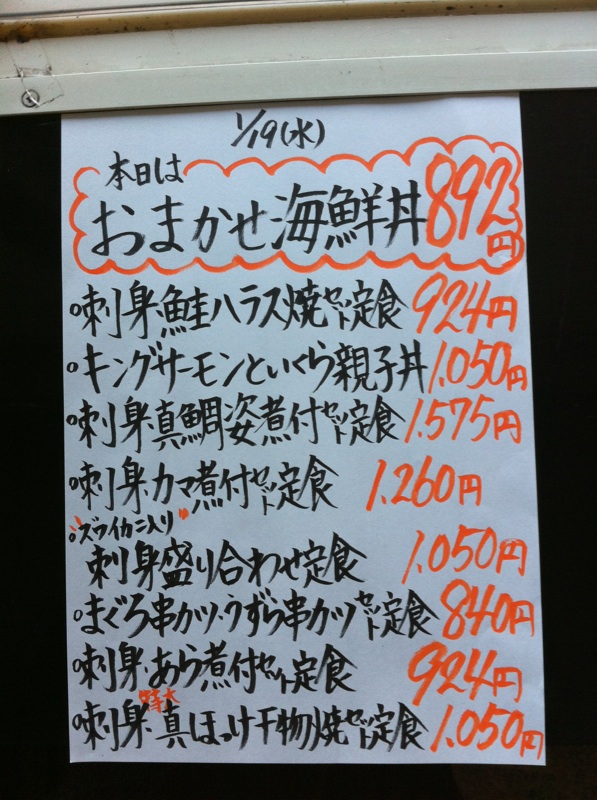 1/19(水)
本日は
おまかせ海鮮丼892円
刺身・鮭ハラス焼セット定食 924円
キングサーモンといくら親子丼 1.050円
刺身・真鯛姿煮付セット定食 1.575円
刺身・カマ煮付セット定食 1.260円
"ズワイカニ入り"
刺身盛り合わせ定食 1.050円
まぐろ串カツ・うずら串カツセット定食 840円
刺身・あら煮付セット定食 924円
特大
刺身・真ほっけ干物焼セット定食 1.050円